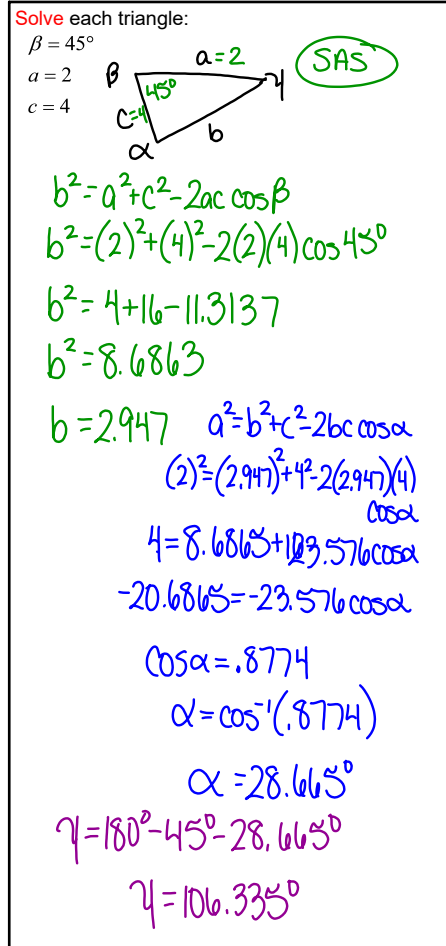 Solve each triangle:
β = 45°
a = 2
c = 4
a=2
SAS
β
45°
γ
c=4
b
α
b²=a²+c²-2ac cosβ
b²=(2)²+(4)²-2(2)(4)cos45°
b²=4+16-11.3137
b²=8.6863
b=2.947
a²=b²+c²-2bc cosα
(2)²=(2.947)²+4²-2(2.947)(4)
cosα
-20.6865=-23.576cosα
cosα=.8774
α=cos⁻¹(.8774)
α=28.665°
γ=180°-45°-28.665°
γ=106.335°